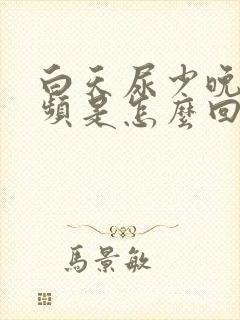 白天尿少晚
頻是怎麼回
馬景敏